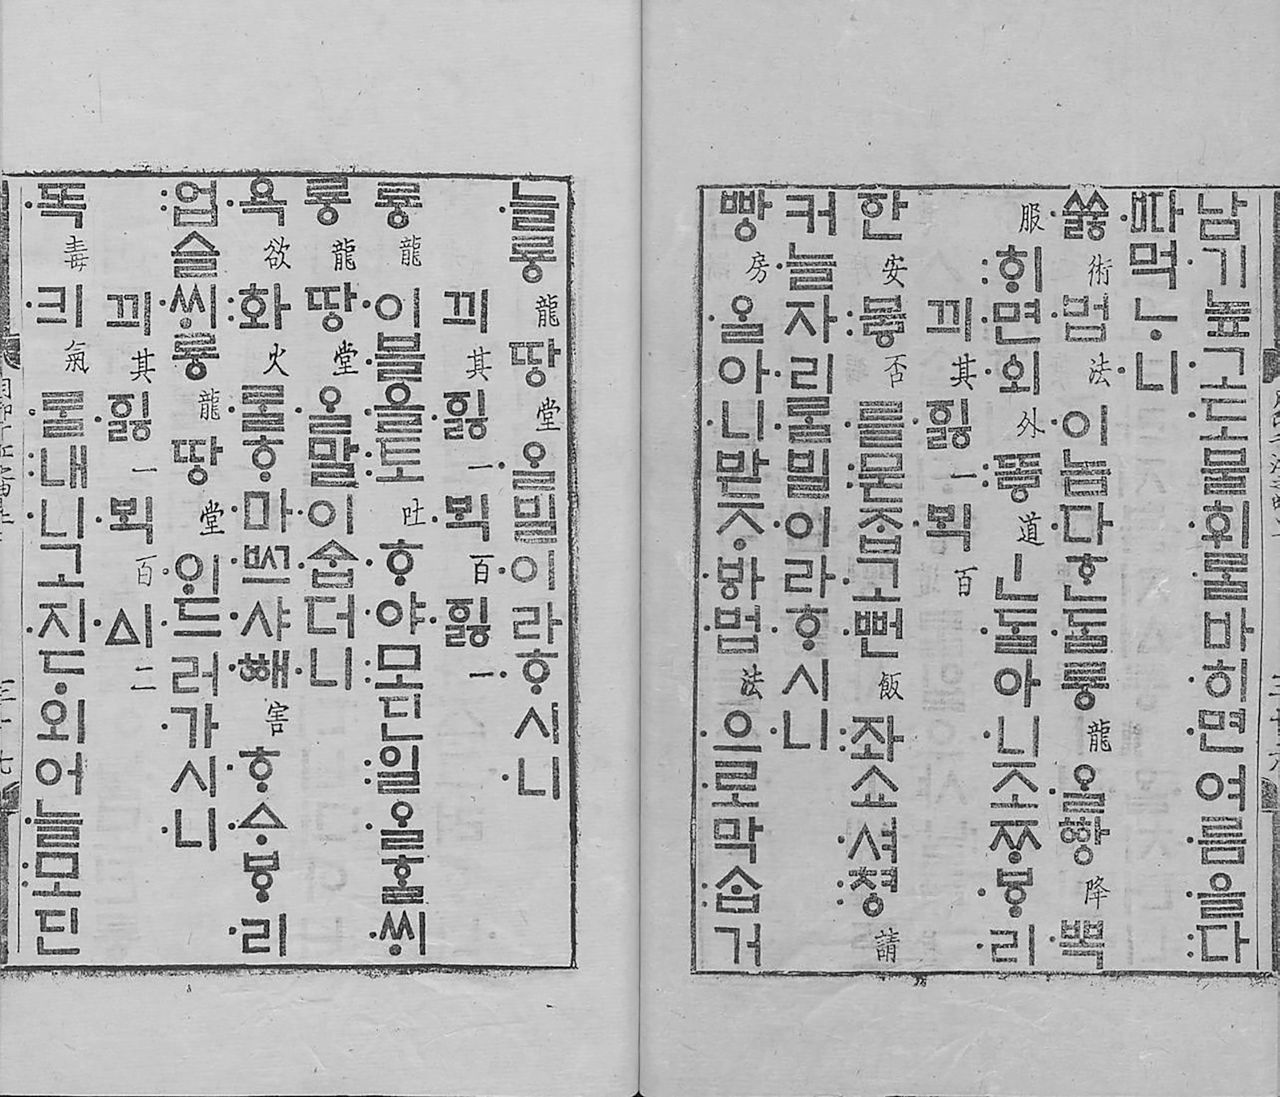 남기높고도불휘ᄅᆞᆯ바히면여름을다
ᄠᅡ먹ᄂᆞ니
쓣術법法이놉다ᄒᆞᆫᄃᆞᆯ룡龍ᄋᆞᆯᅘᅡᇰ降뽁
服ᄒᆡ면외外뜧道ㅣᆫᄃᆞᆯ아니조ᄍᆞᄫᆞ리
끠其ᅙᅵᇙ一ᄇᆡᆨ百
ᅙᅡᆫ安ᄫᅮᇢ否를묻ᄌᆞᆸ고뻔飯좌쇼셔쳥請
커늘자리ᄅᆞᆯ빌이라ᄒᆞ시니
빵房ᄋᆞᆯ아니받ᄌᆞᄫᅡ법法으로막ᄉᆞᆸ거
늘룡龍땅堂ᄋᆞᆯ빌이라ᄒᆞ시니
끠其ᅙᅵᇙ一ᄇᆡᆨ百ᅙᅵᇙ一
룡龍이블을토吐ᄒᆞ야모딘일ᄋᆞᆯᄒᆞᆯᄊᆡ
룡龍땅堂ᄋᆞᆯ말이ᅀᆞᆸ더니
욕欲화火ᄅᆞᆯᄒᆞ마ᄢᅳ샤ᅘᅢ害ᄒᆞᅀᆞᄫᆞ리
업슬ᄊᆡ룡龍땅堂ᄋᆡ드러가시니
끠其ᅙᅵᇙ一ᄇᆡᆨ百ᅀᅵ二
똑毒킈氣ᄅᆞᆯ내니고지ᄃᆞ외어늘모딘